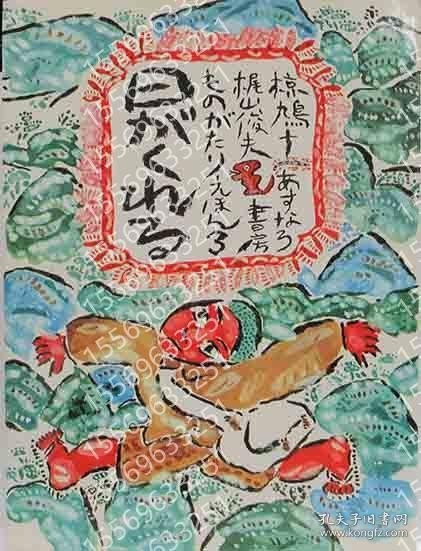 椋鳩十 あすなろ
梶山俊夫 書房
ものがたりえほん3
日がくれる
15569633251
孔夫子旧书网
www.kongfz.com